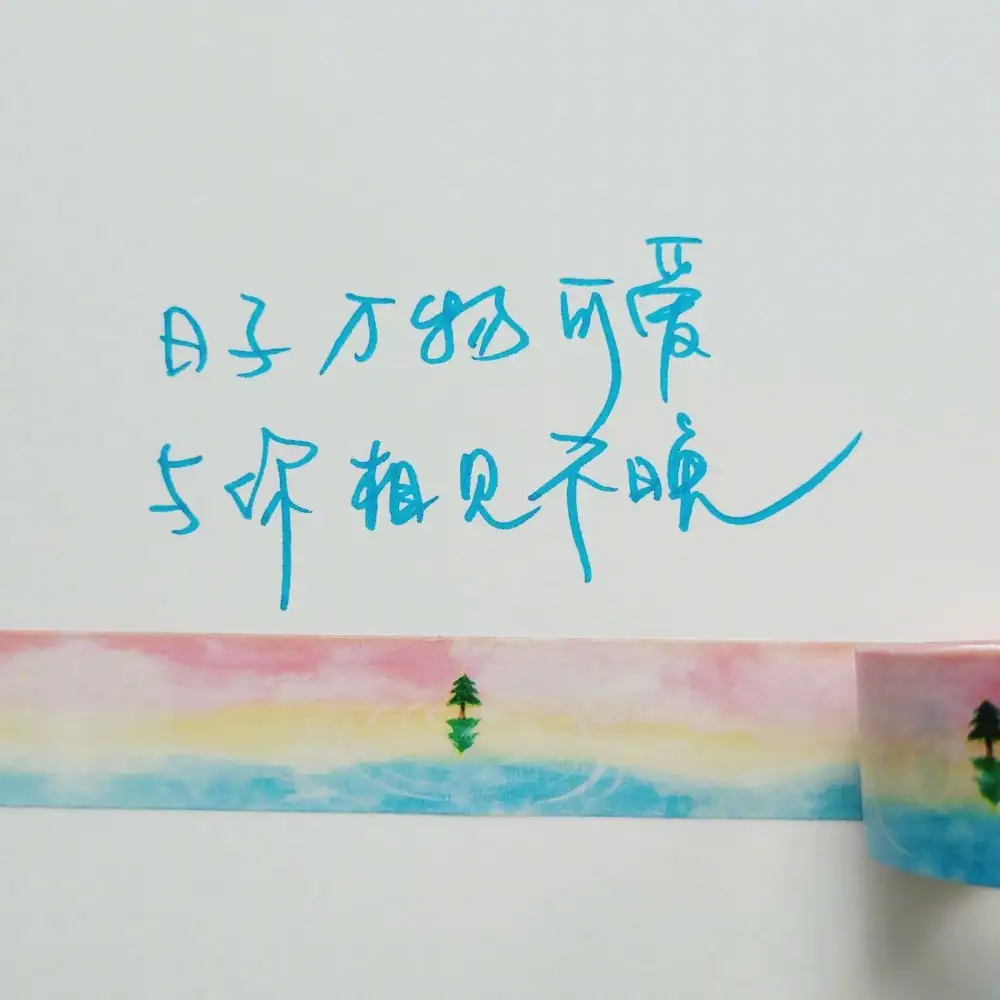 日子万物可爱
与你相见不晚